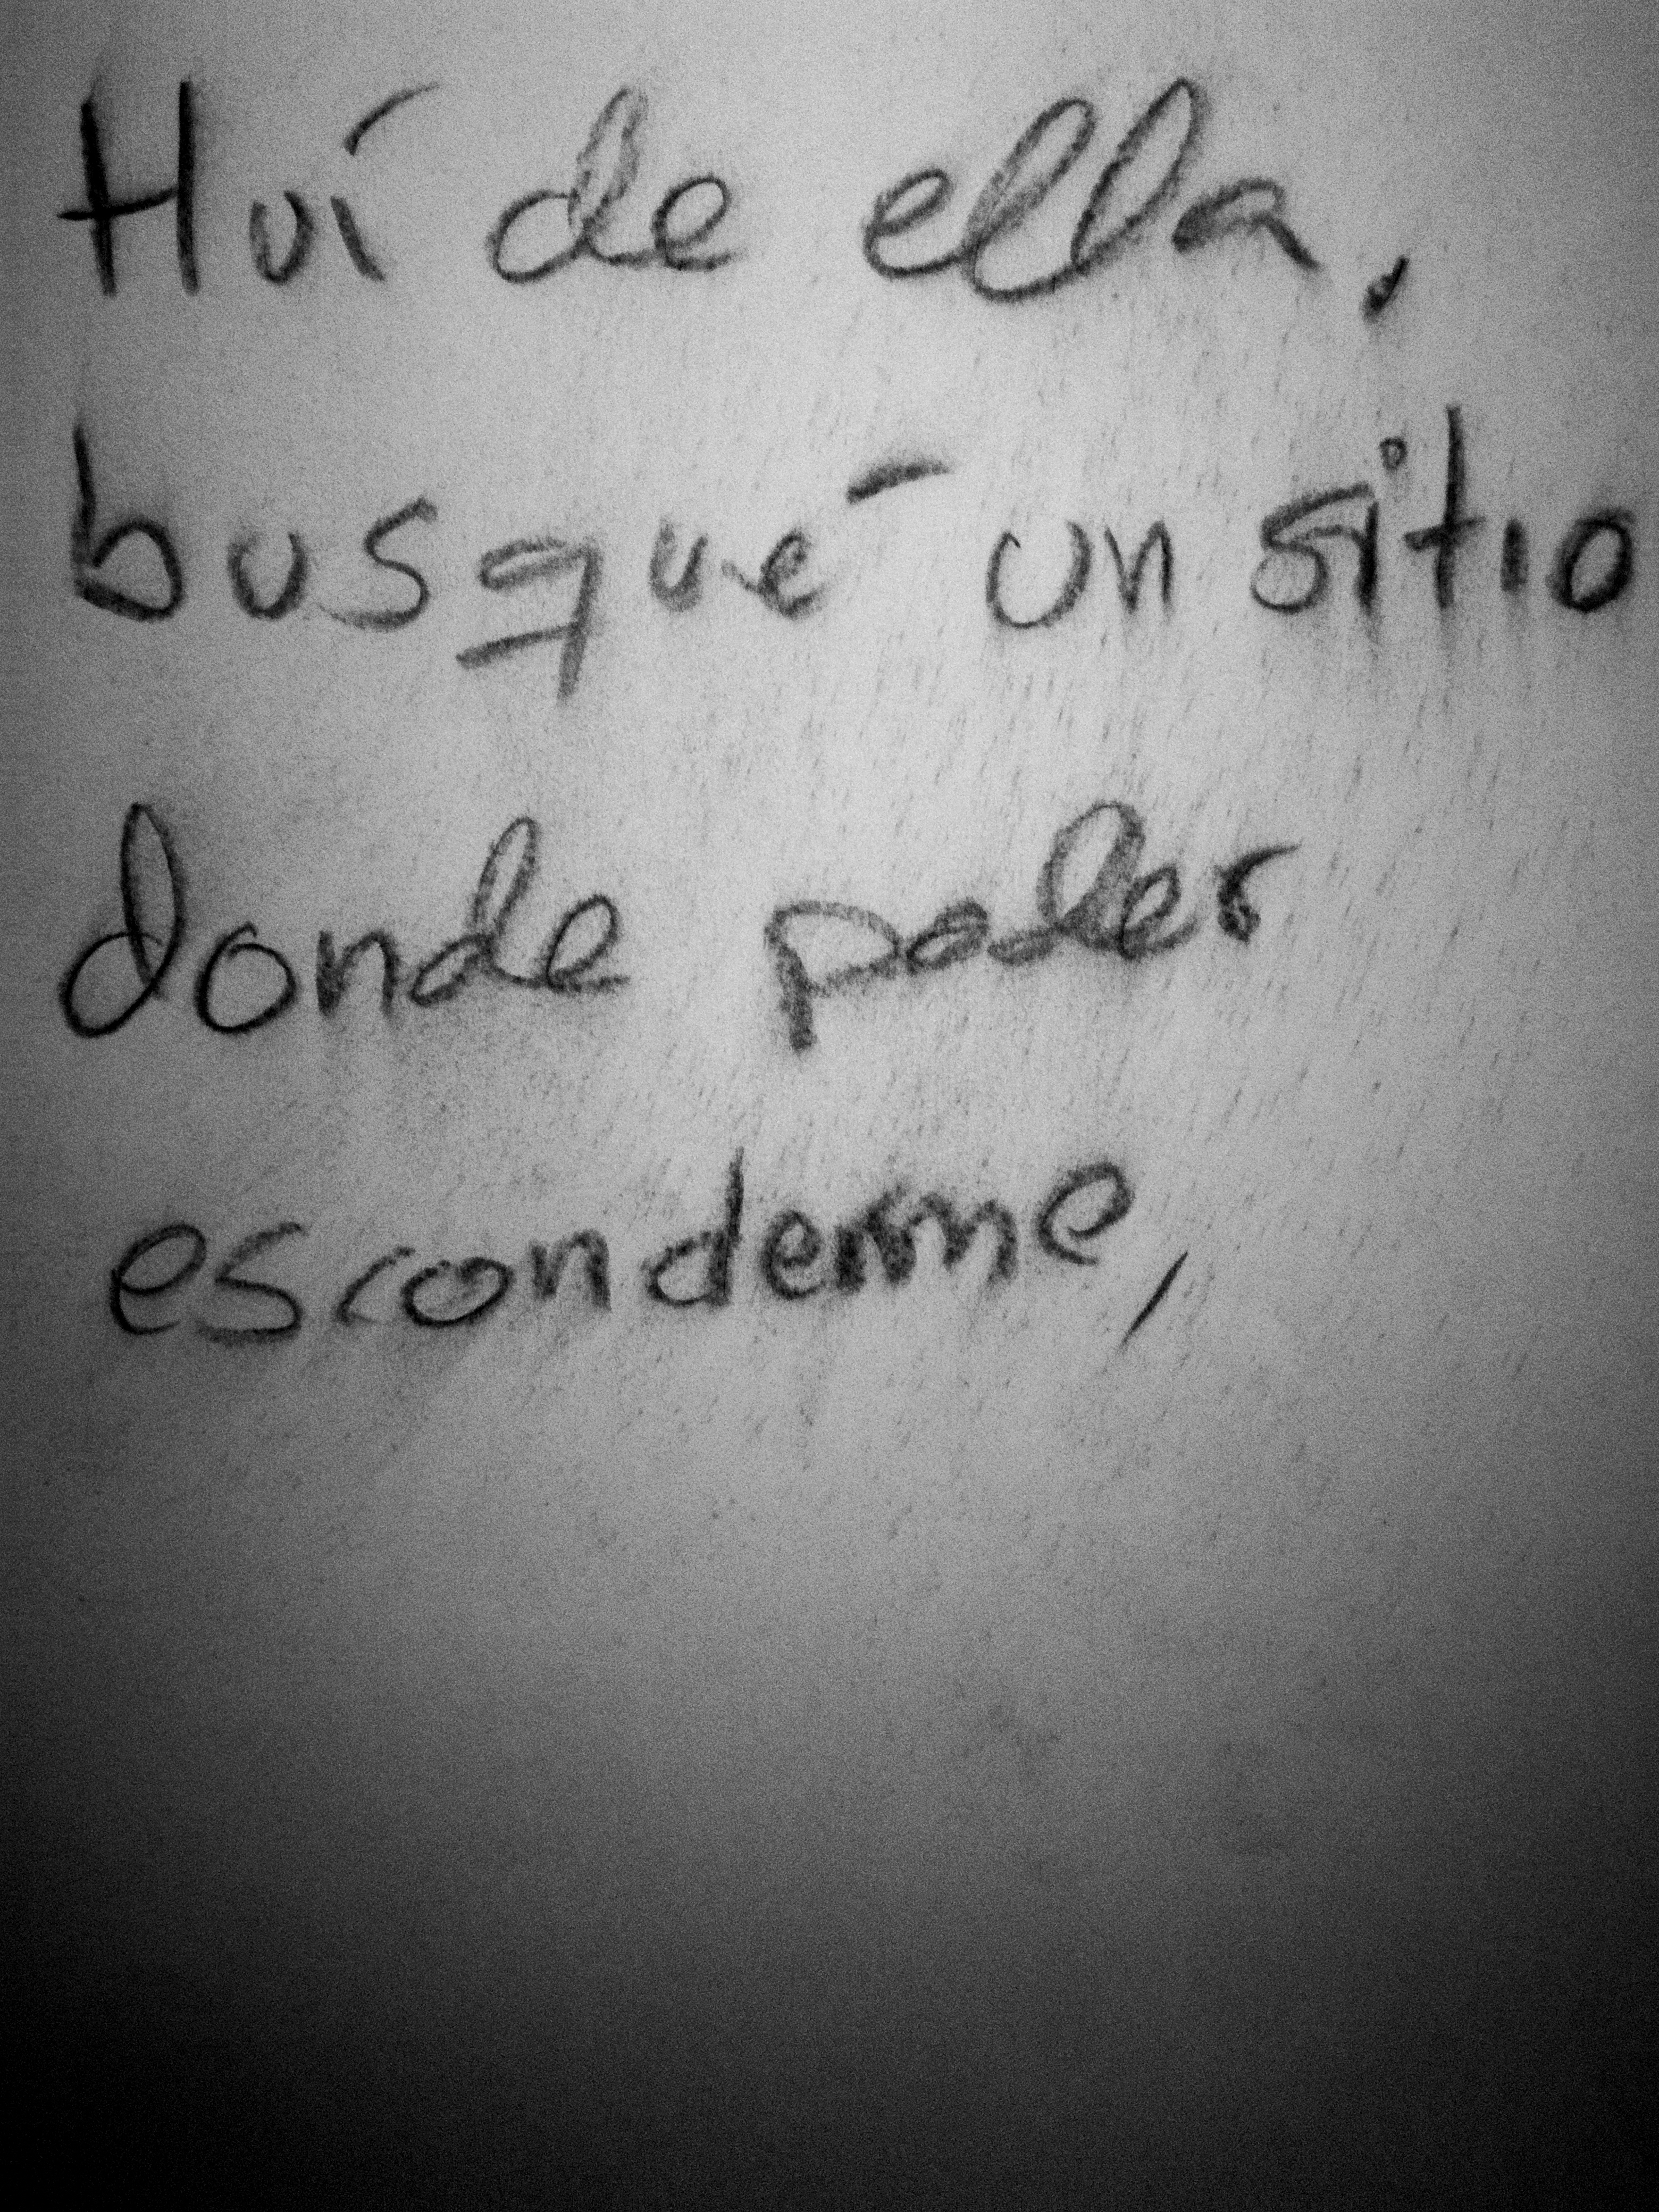 Huí de ella,
busqué un sitio
donde poder
esconderme,